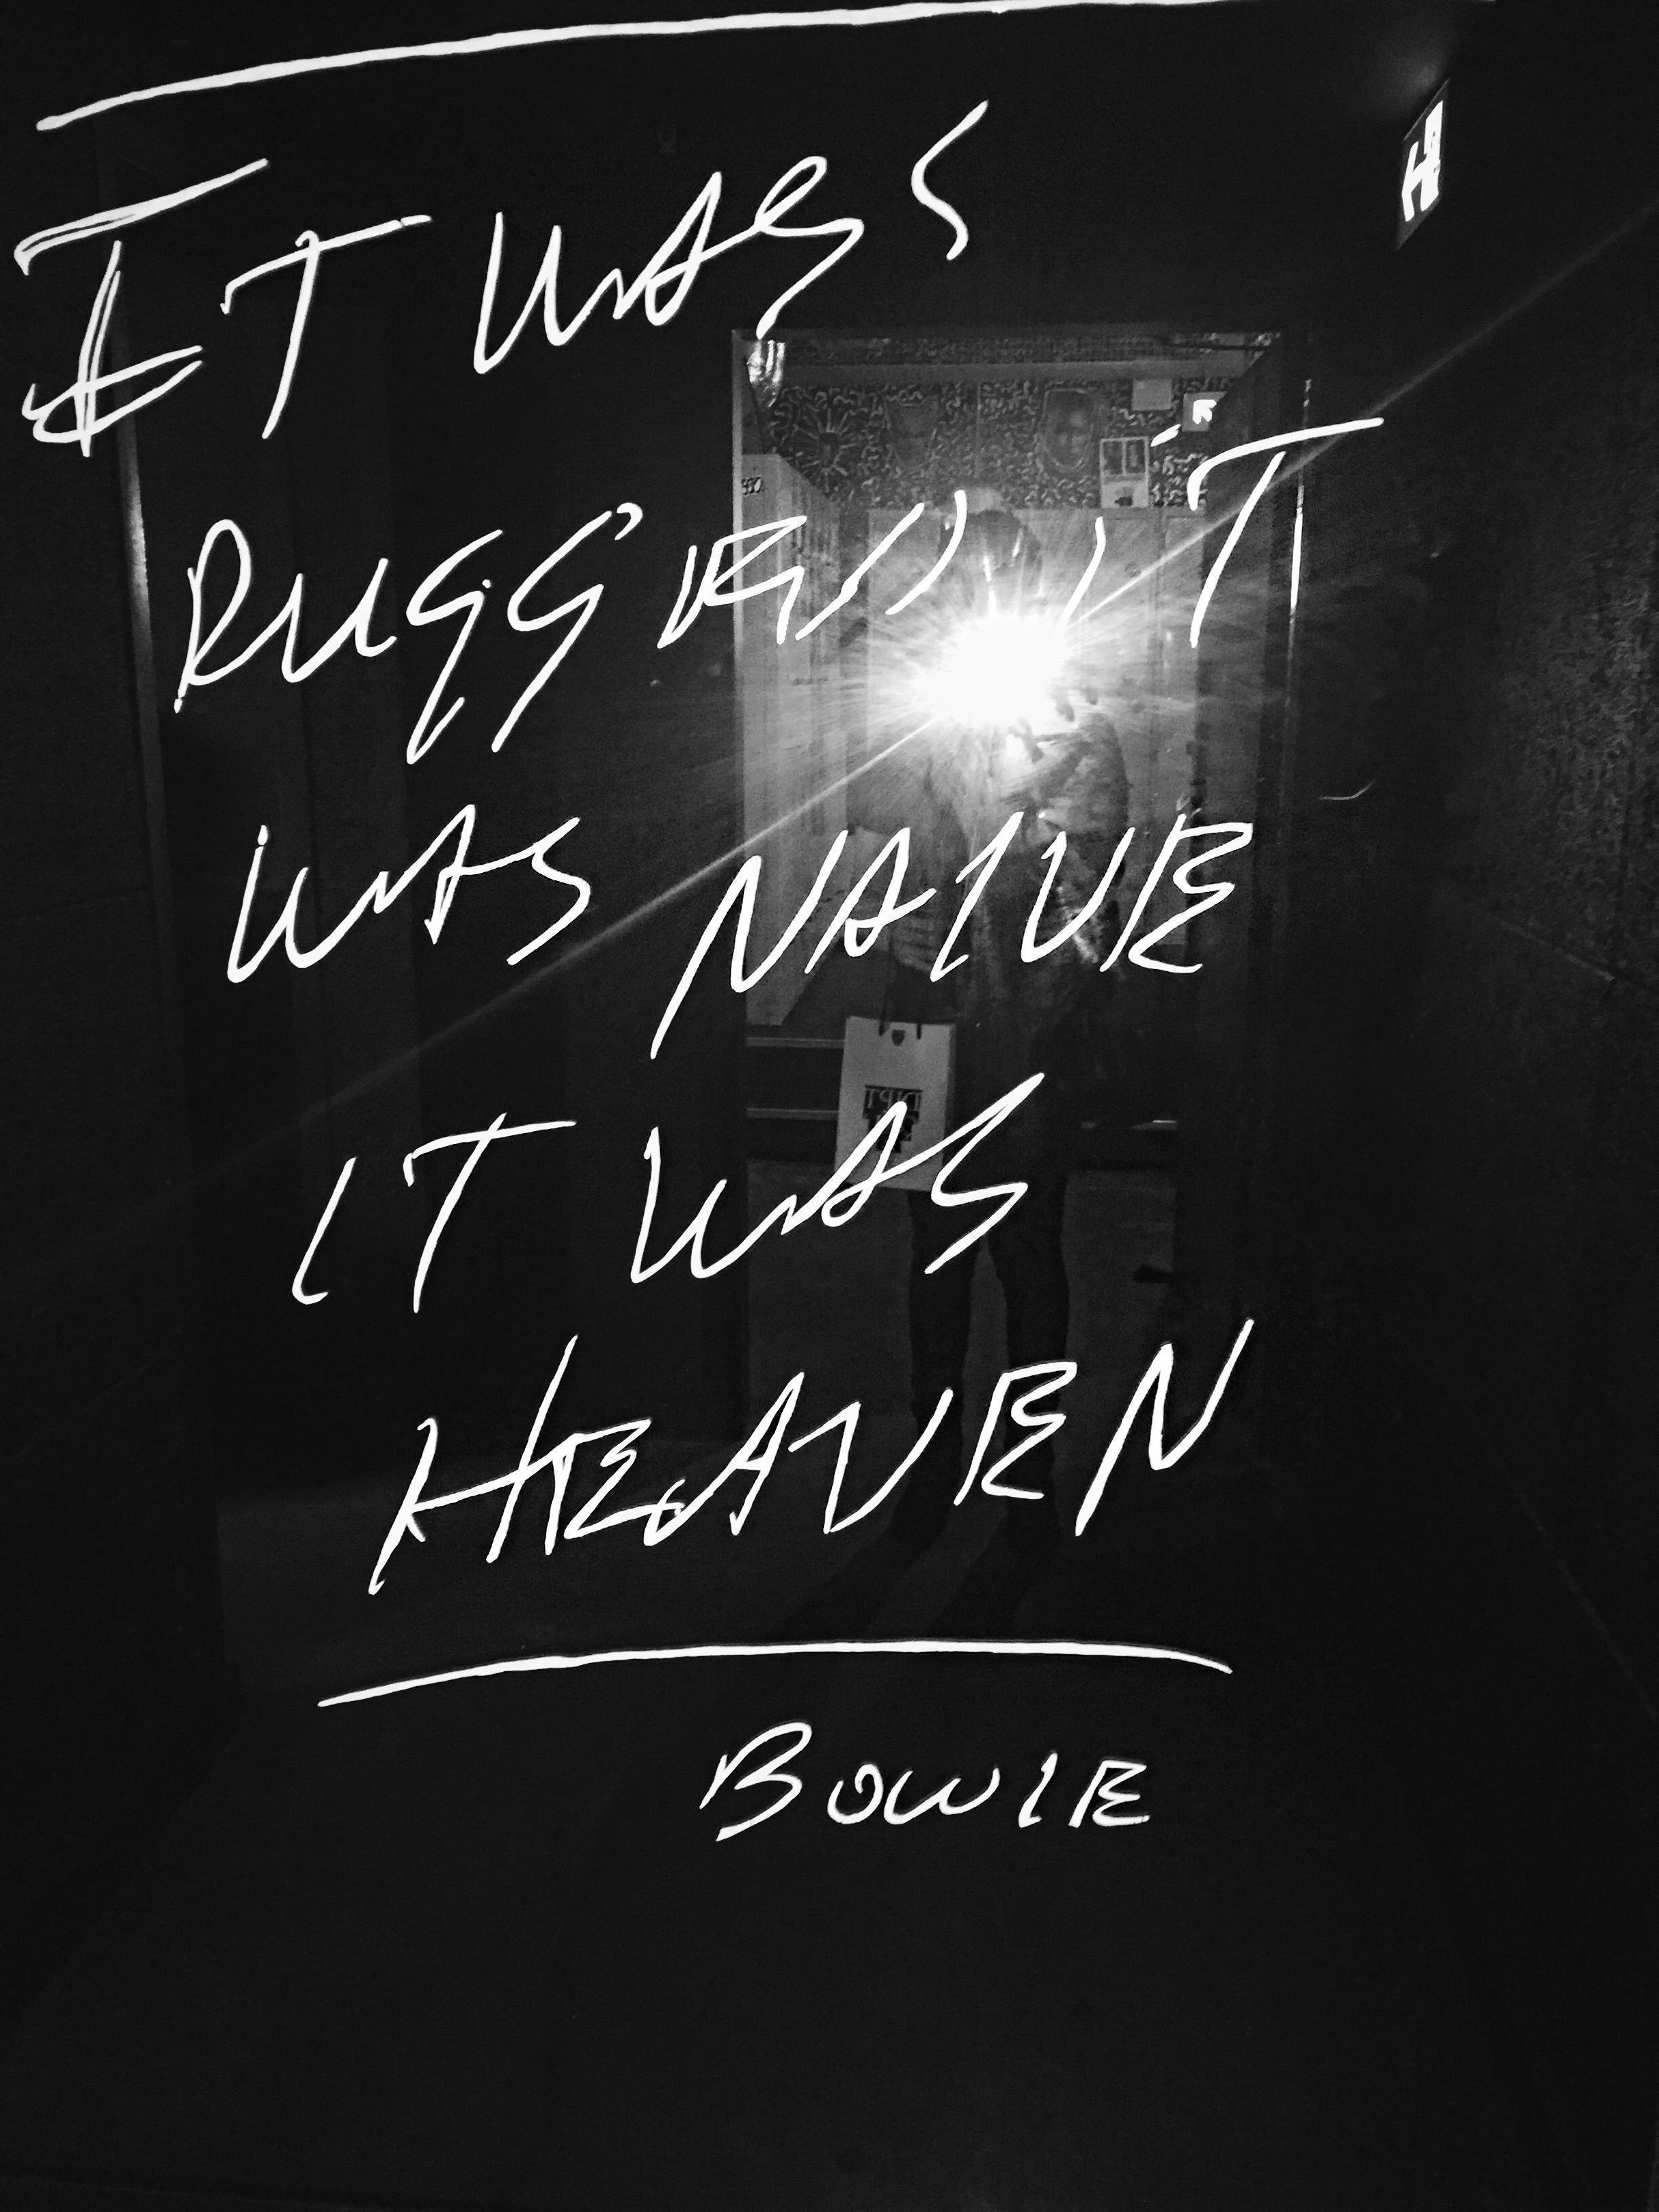 IT WAS
RUGGED, IT
WAS NAIVE
IT WAS
HEAVEN
BOWIE